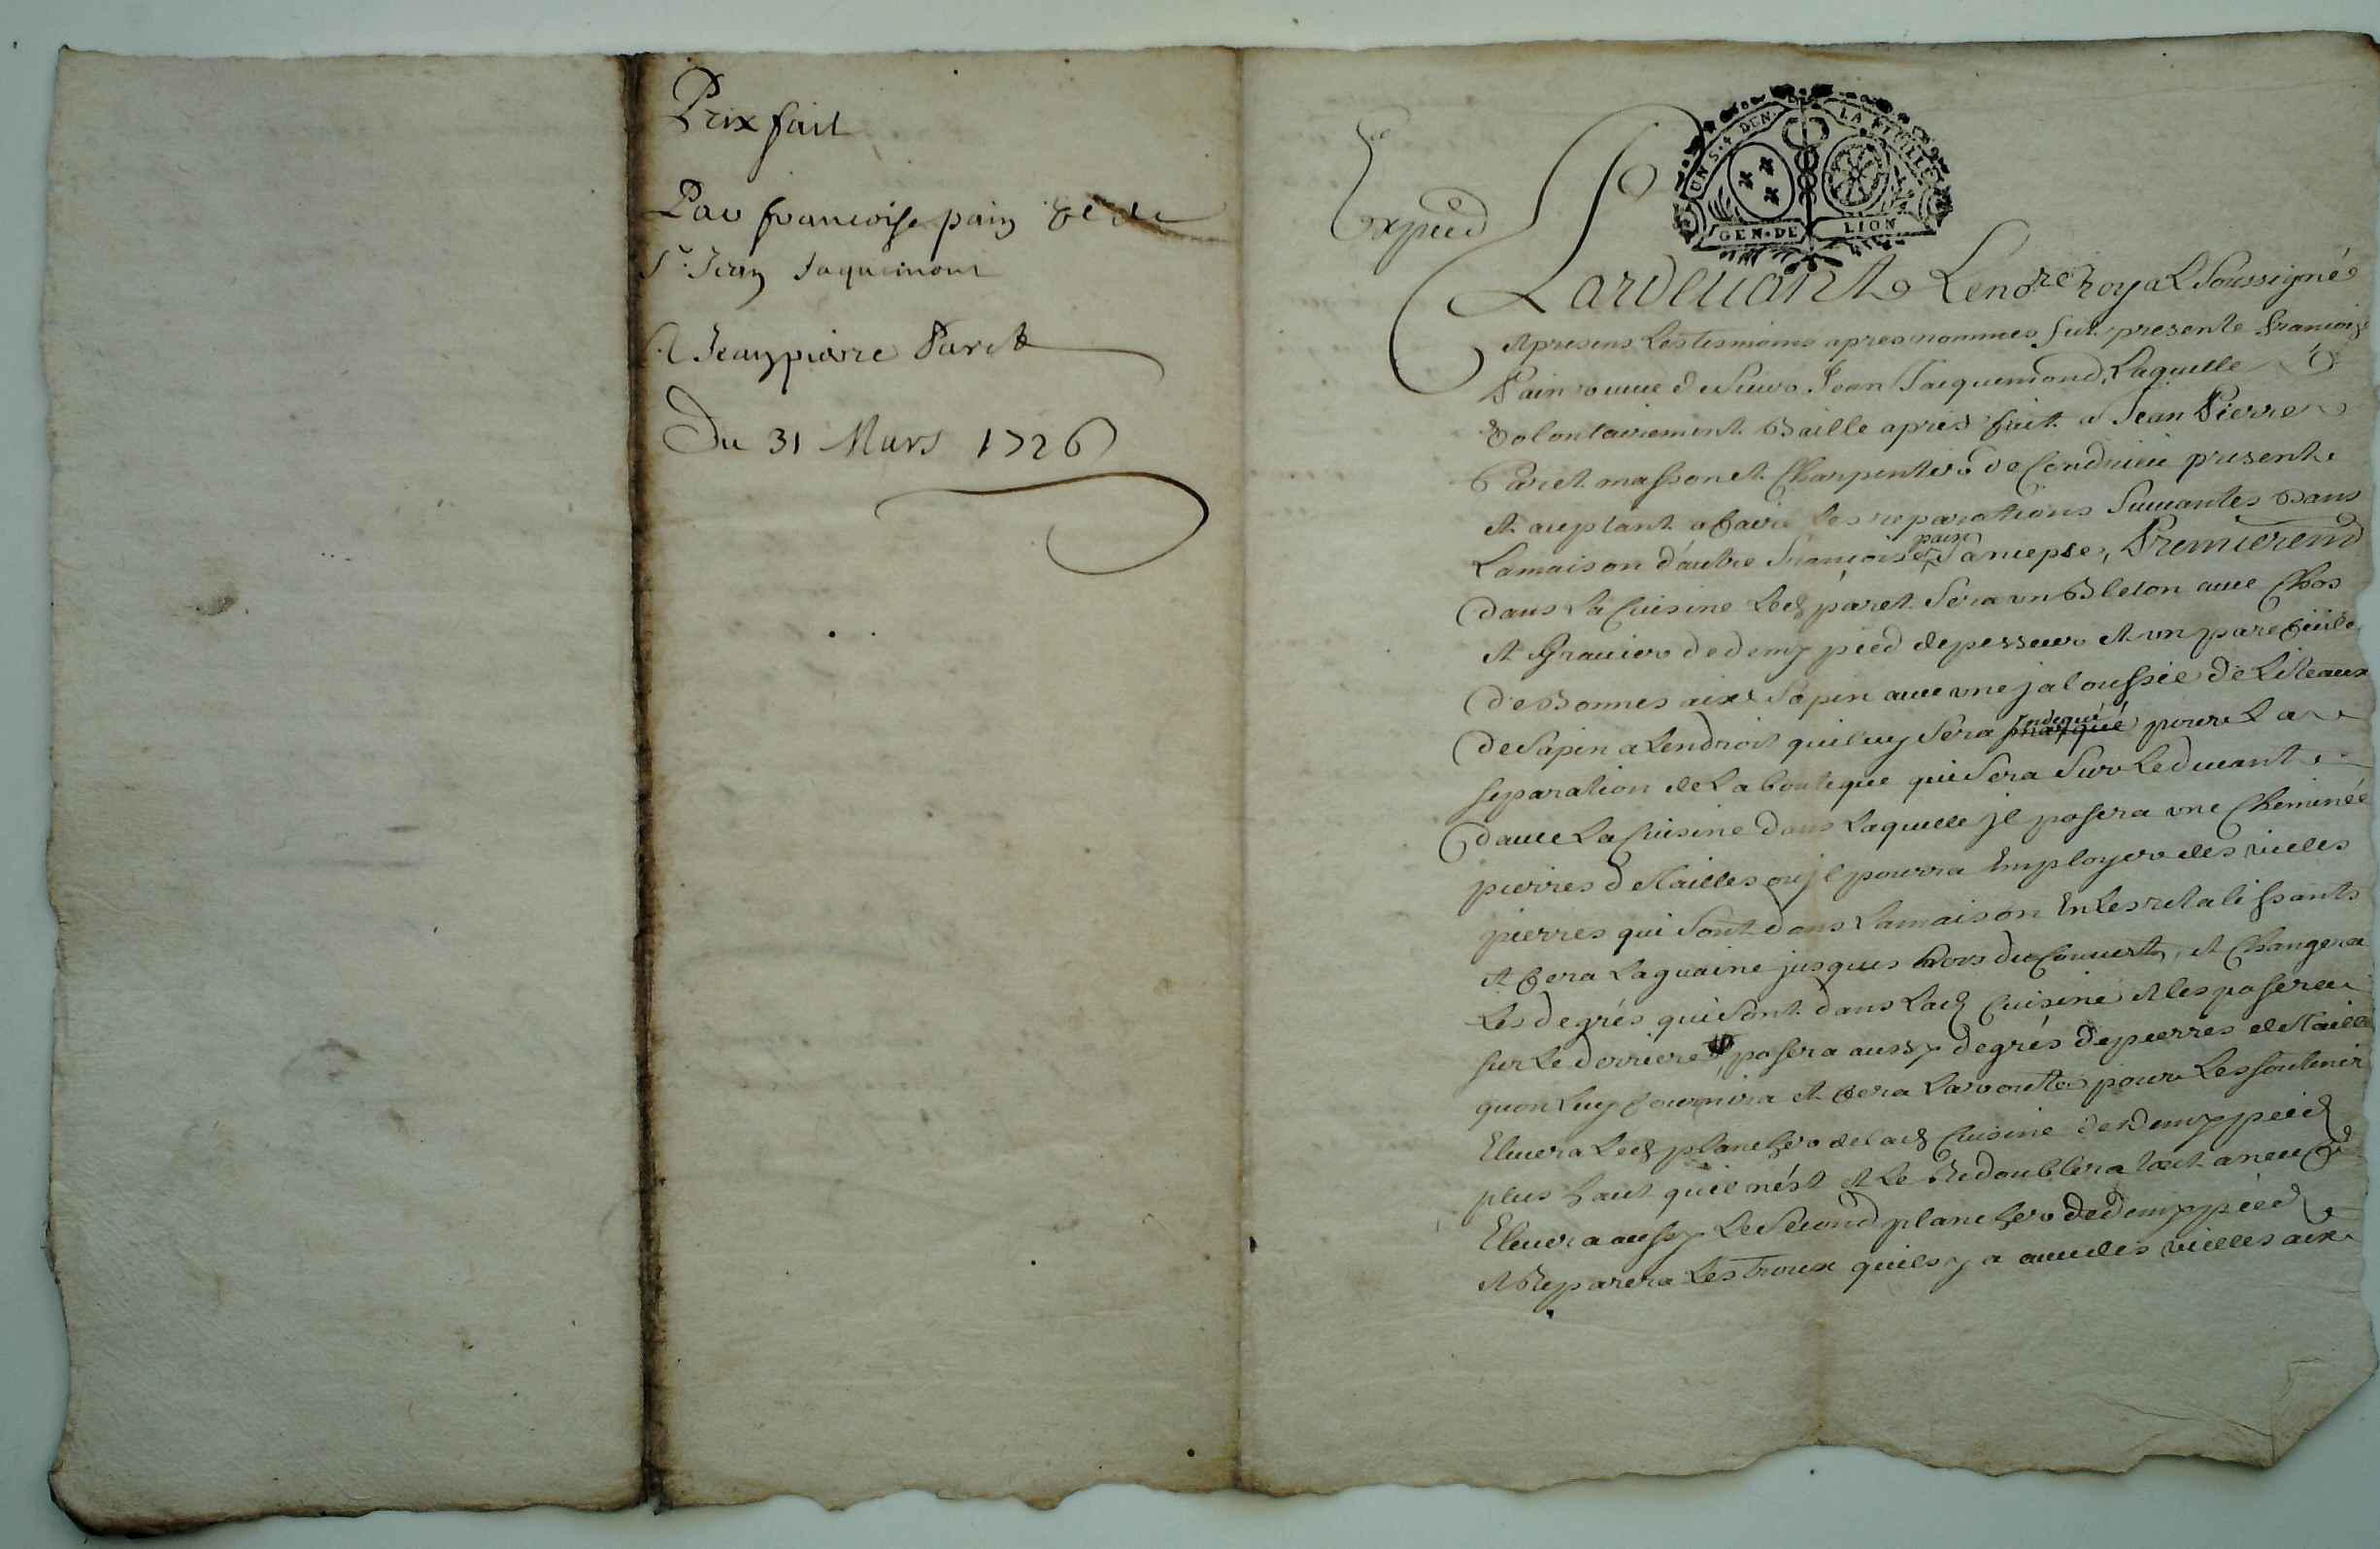 Prix fait
Par francoise pain ve de
Sr. Jean Jaquemont
A Jeanpierre Paret
Du 31 Mars 1726
Exped
UN S. 4 DEN. LA FEUILLE
GEN. DE LION
Pardeuant Le nore royal Soussigné
et presens Les tesmoins apres nommes fut presente francoise
Pain veuue de sieur Jean Jacquemond, Laquelle
Volontairement Baille a prix fait a Jean Pierre
Paret masson et Charpentier de Condrieu present
et aceptant a faire Les reparations Suiuantes Dans
La maison d'autre francoise pain Sa niepse, Premieremt
Dans La Cuisine Led paret fera un Bleton auec Chos
et Grauier de demy pied depesseur et un parefeüile
De Bonnes aix Sapin auec une jaloussiee de Liteaux
De Sapin a Lendroit quil luy Sera marqué Indiqué pour La
separation de La boutique qui Sera Sur Le deuant
dauec La Cuisine dans Laquelle jl posera une Cheminée
pierres de tailles ou jl pourra Employer des vielles
pierres qui Sont dans La maison En Les retalissants
et fera La guaine jusques hors du Couuert, et Changera
Les degrés qui Sont dans Lad Cuisine et les posera
sur Le derriere posera aussy degrés de pierres de taille
quon Luy fournira et fera La voute pour Les soutenir
Eleuera Led plancher de Lad Cuisine de demy pied
plus haut quil nést et Le Redoublera tout a neuf
Eleuera aussy Le Second plancher de demy pied
et Reparera Les troux quil y a auec des vielles aix